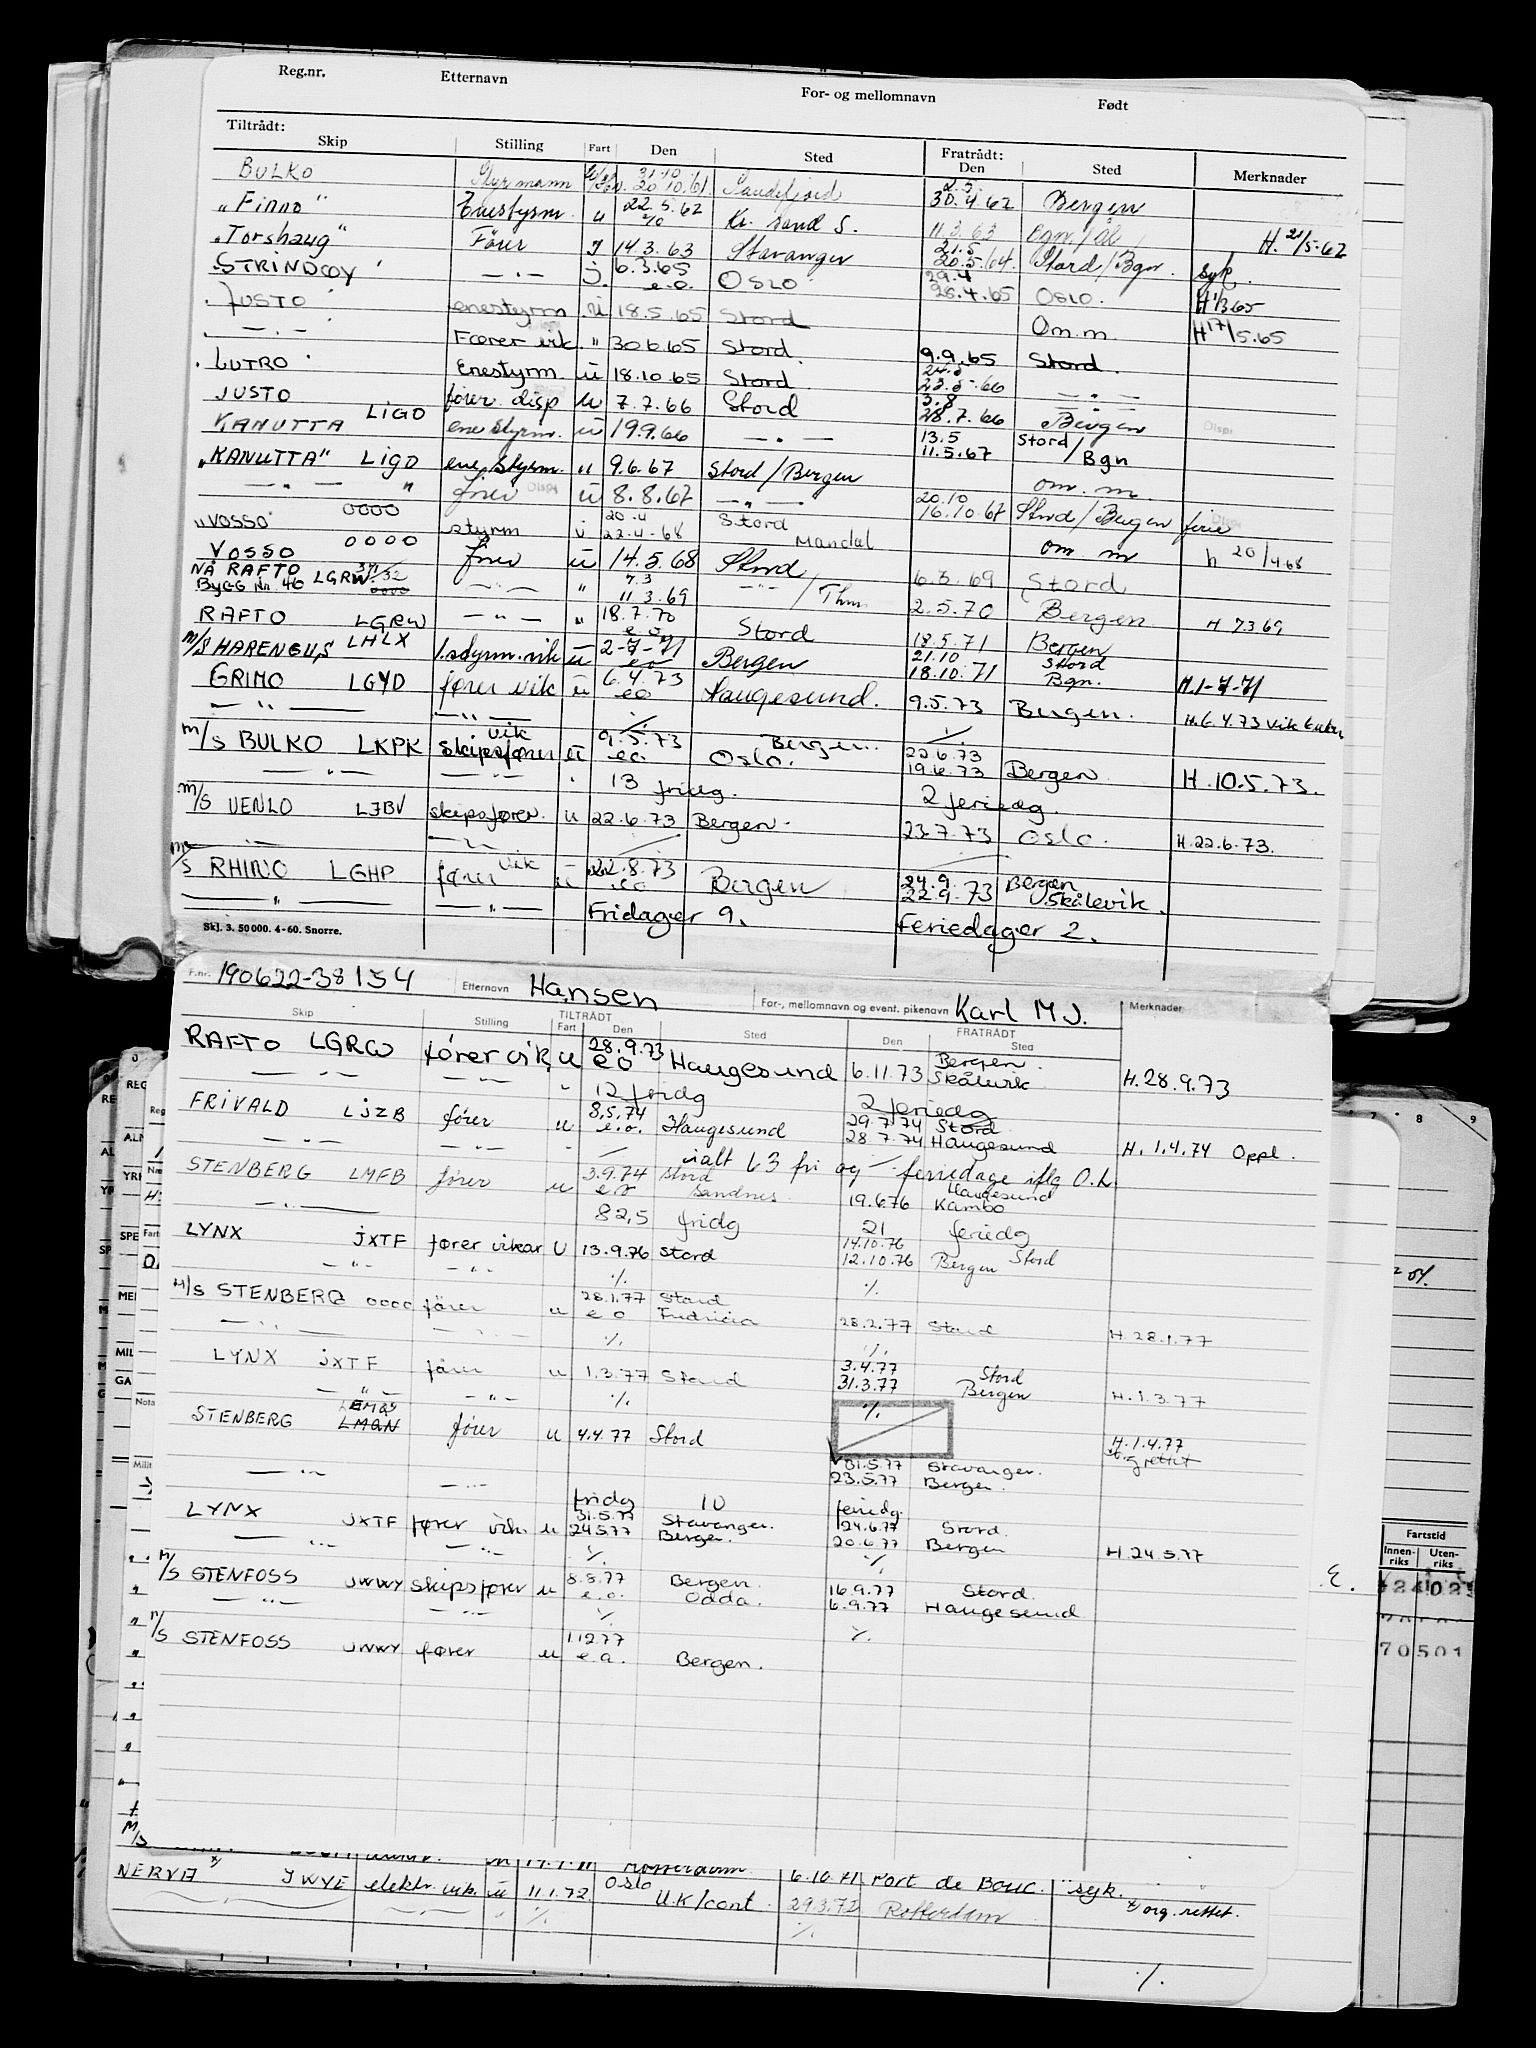 Reg.nr. Etternavn For- og mellomnavn Født
Tiltrådt: Fratrådt:
Skip Stilling Fart Den Sted Den Sted Merknader
BULKO Styrmann 31.10 20.10.61 Sandefjord 2.5 30.4.62 Bergen
"Finno" Enestyrm. u 22.5.62 Kr. sand S. 11.3.63 Bgn./ål H. 21/5-62
"Torshaug" Fører j 14.3.63 Stavanger 21.5 20.5.64. Stord/Bgn. syk.
STRINDØY — " — j. 6.3.65 e.o. OSLO 29.4 28.4.65 OSLO. H 1/3 65
JUSTO enestyrm u 18.5.65 Stord Om.m. H 17/5.65
— " — Fører vik. " 30.6.65 Stord. 9.9.65 Stord.
LUTRO Enestyrm u 18.10.65 Stord 24.5 23.5.66 — " —
JUSTO fører disp u 7.7.66 Stord 3.8 28.7.66 Bergen
KANUTTA LIGD ene styrm. u 19.9.66 — " — 13.5 11.5.67 Stord/Bgn
"KANUTTA" LIGD ene styrm. u 9.6.67 Stord/Bergen om. m.
— " — " fører Disp u 8.8.67 — " — 20.10 16.10.67 Stord/Bergen ferie
"VOSSO" OOOO styrm u 20.4 22.4.68 Stord Mandal om m h 20/4.68
VOSSO OOOO fører u 14.5.68 Stord 6.3.69 Stord
NÅ RAFTO BYGG Nr. 46 LGRW OOOO — " — " 7.3 11.3.69 — " — /Thm. 2.5.70 Bergen H 7.3 69
RAFTO LGRW — " — " 18.7.70 e.o. Stord 18.5.71 Bergen
M/S HARENGUS LHLX 1.styrm.vik u 2-7-71 e.o Bergen 21.10 18.10.71 Stord Bgn. H.1-7-71
GRIMO LGYD fører vik u 6.4.73 e o Haugesund. 9.5.73 Bergen. H.6.4.73
— " — — " — ./. ./.
M/S BULKO LKPK vik skipsfører u 9.5.73 e.o. Bergen. Oslo. 22.6.73 19.6.73 Bergen. H.10.5.73.
— " — — " — " 13 fridg. 2 feriedg.
M/S VENLO LJBV skipsfører. u 22.6.73 Bergen. 23.7.73 Oslo. H.22.6.73.
— " — — " —
M/S RHINO LGHP fører vik u 22.8.73 e.o Bergen 24.9. 22.9.73 Bergen Skålevik.
— " — — " — Fridager 9. Feriedager 2.
Skj. 3. 50 000. 4-60. Snorre.
F.nr. 190622-38154 Etternavn Hansen For-, mellomnavn og event. pikenavn Karl M J. Merknader
TILTRÅDT FRATRÅDT
Skip Stilling Fart Den Sted Den Sted
RAFTO LGRW fører vik. u 28.9.73 e o Haugesund 6.11.73 Bergen. Skålevik H.28.9.73
— " — — " — " 12 fridg 2 feriedg
FRIVALD LJZB fører u 8.5.74 e.o. Haugesund 29.7.74 28.7.74 Stord Haugesund H. 1.4.74 Oppl.
— " — — " — " ialt 63 fri og — feriedage iflg O.L.
STENBERG LMFB fører u 3.9.74 e.o Stord Sandnes. 19.6.76 Haugesund Kambo
— " — 82,5 fridg 21 feriedg
LYNX JXTF fører vikar U 13.9.76 Stord 14.10.76 12.10.76 Bergen Stord
— " — — " — ./. ./.
M/S STENBERG OOOO fører u 28.1.77 e o Stord Fredricia 28.2.77 Stord H.28.1.77
— " — — " — ./. ./.
LYNX JXTF fører u 1.3.77 Stord 3.4.77 31.3.77 Stord Bergen H.1.3.77
— " — — " — ./. ./.
STENBERG LMQN fører u 4.4.77 Stord H.1.4.77
— " — — " — 31.5.77 23.5.77 Stavanger. Bergen.
fridg 10 feriedg.
LYNX JXTF fører vik. u 31.5.77 24.5.77 Stavanger. Bergen. 24.6.77 20.6.77 Stord. Bergen H.24.5.77
— " — — " — ./. ./.
M/S STENFOSS JWWY skipsfører u 8.8.77 e.o. Bergen. Odda. 16.9.77 6.9.77 Stord. Haugesund
— " — — " — ./. ./.
M/S STENFOSS JWWY fører u 1.12.77 e.o. Bergen.
Rotterdam 6.10.71 Port de Bouc. syk.
NERVA JWYE elektr. vik. u 11.1.72 Oslo U.K/cont. 29.3.72 Rotterdam x) org. rettet.
./. ./. ./.
7 8 9
Fartstid
Innenriks Utenriks
70501